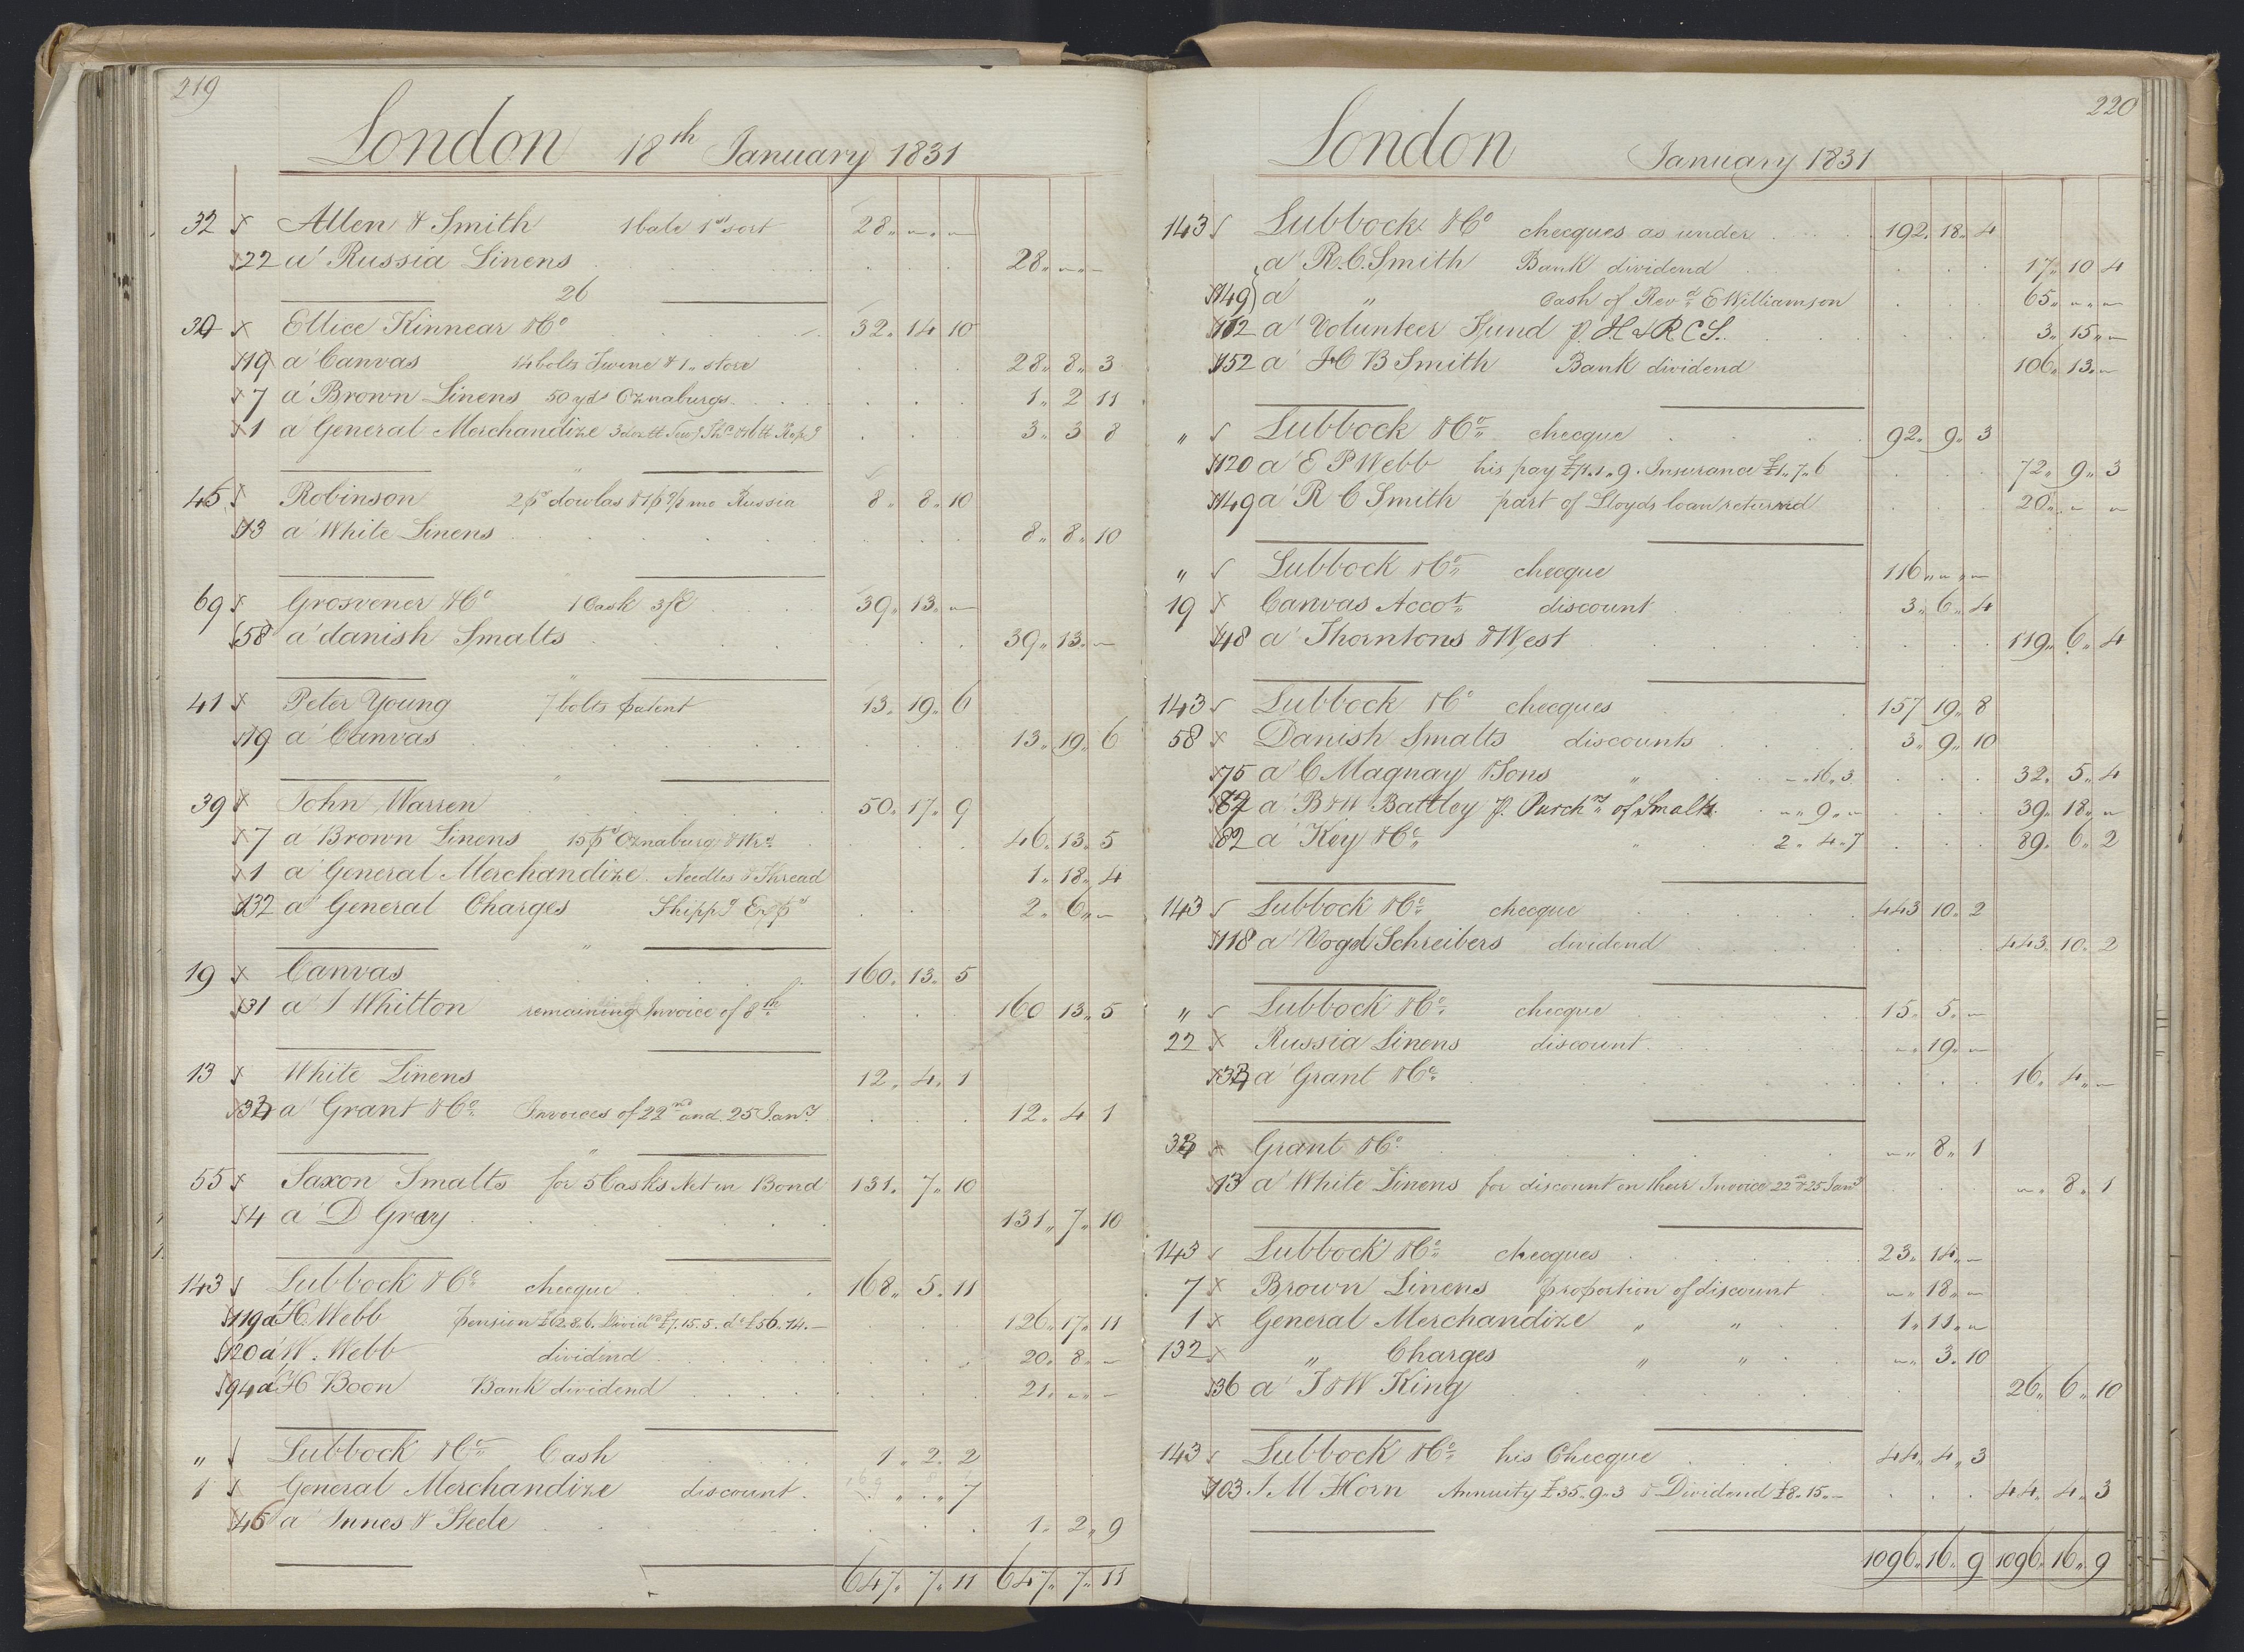 219
London 18th January 1831
32 Allen & Smith 1 bale 1st sort 28 „ – „ –
22 a' Russia Linens 28 „ – „ –
26
30 Ellice Kinnear & Co 32 . 14 10
19 a' Canvas 14 bolts Twine & 1 „ store 28 „ 8 „ 3
7 a' Brown Linens 50 yds Oznaburgs 1 „ 2 11
1 a' General Merchandize 3 3 „ 3 8
„
45 Robinson 2 ps dowlas & 1 ps Russia 8 „ 8 . 10
13 a' White Linens 8 „ 8 „ 10
„
69 Grosvener & Co 1 Cask 39 „ 13 „ –
58 a' danish Smalts 39 „ 13 „ –
„
41 Peter Young 7 bolts patent 13 . 19 . 6
19 a' Canvas 13 „ 19 „ 6
„
39 John Warren 50 . 17 . 9
7 a' Brown Linens 15 ps Oznaburg 46 . 13 . 5
1 a' General Merchandize Needles & Thread 1 „ 18 „ 4
132 a' General Charges Shippg Exps 2 . 6 „ –
„
19 Canvas 160 . 13 . 5
31 a' J Whitton remaining Invoice of 8th 160 13 „ 5
13 White Linens 12 . 4 . 1
a' Grant & Co Invoices of 22nd and 25 Jany 12 „ 4 1
„
55 Saxon Smalts for 5 Casks Net in Bond 131 . 7 „ 10
4 a' D Gray 131 „ 7 „ 10
143 Lubbock & Co checque 168 „ 5 . 11
119 a' H Webb pension £62.8.6. Divid £7.15.5. do £56.14.– 126 „ 17 „ 11
120 a' W. Webb dividend 20 „ 8 „ –
94 a' H Boon Bank dividend 21 „ – „ –
„ Lubbock & Co Cash 1 „ 2 . 2
1 General Merchandize discount 7
45 a' Innes & Steele 1 „ 2 „ 9
647 „ 7 „ 11 647 „ 7 „ 11
220
London January 1831
143 Lubbock & Co checques as under 192 . 18 . 4
a' R. C. Smith Bank dividend 17 „ 10 4
149 a' „ Cash of Revd E Williamson 65 „ – „ –
112 a' Volunteer Fund p. H & R C S. 3 „ 15 „ –
152 a' H B Smith Bank dividend 106 „ 13 „ –
„ Lubbock & Co checque 92 „ 9 „ 3
120 a' E P Webb his pay £71 „ 1 „ 9 . Insurance £1 „ 7 „ 6 72 „ 9 „ 3
149 a' R C Smith part of Lloyds loan returned 20 „ – –
„ Lubbock & Co checque 116 „ – „ –
19 Canvas Accot discount 3 „ 6 „ 4
48 a' Thorntons & West 119 „ 6 „ 4
143 Lubbock & Co checques 157 19 „ 8
58 Danish Smalts discounts 3 „ 9 „ 10
75 a' C Magnay & Sons „ – „ 16 „ 3 32 „ 5 „ 4
a' B & W Battley p. Purchs of Smalts – „ 9 „ – 39 „ 18 „ –
82 a' Key & Co „ 2 „ 4 „ 7 89 „ 6 „ 2
143 Lubbock & Co checque 443 10 „ 2
118 a' Vogel Schreibers dividend 443 . 10 . 2
„ Lubbock & Co checque 15 „ 5 „ –
22 Russia Linens discount – „ 19 „ –
a' Grant & Co 16 . 4 „ –
Grant & Co – „ 8 „ 1
13 a' White Linens for discount on their Invoice 22nd & 25 Jany – „ 8 „ 1
143 Lubbock & Co checques 23 „ 14 „ –
7 Brown Linens proportion of discount – „ 18 „ –
1 General Merchandize „ „ 1 „ 11 „ –
132 „ Charges „ „ – „ 3 . 10
36 a' J & W King 26 „ 6 „ 10
143 Lubbock & Co his Checque 44 „ 4 „ 3
103 J. M Horn Annuity £35 „ 9 „ 3 & Dividend £8 „ 15 „ – 44 „ 4 „ 3
1096 „ 16 „ 9 1096 „ 16 „ 9